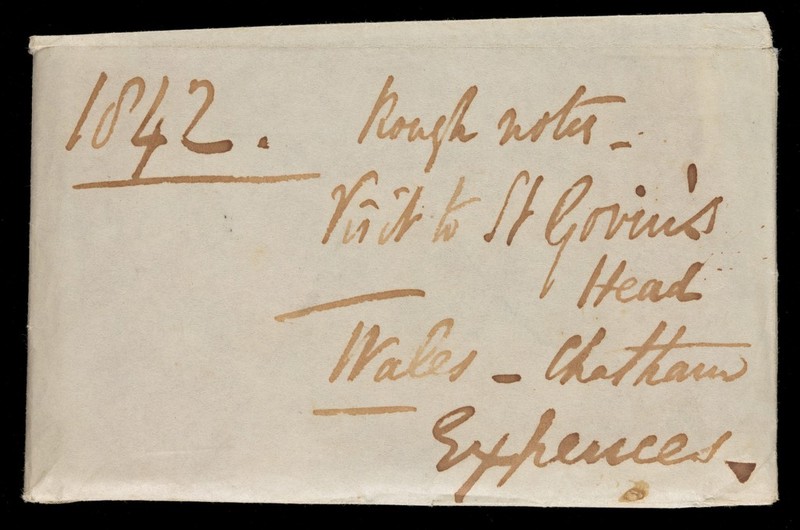 1842. Rough notes -
Visit to St Govin's
Head
Wales - Chatham
Expences